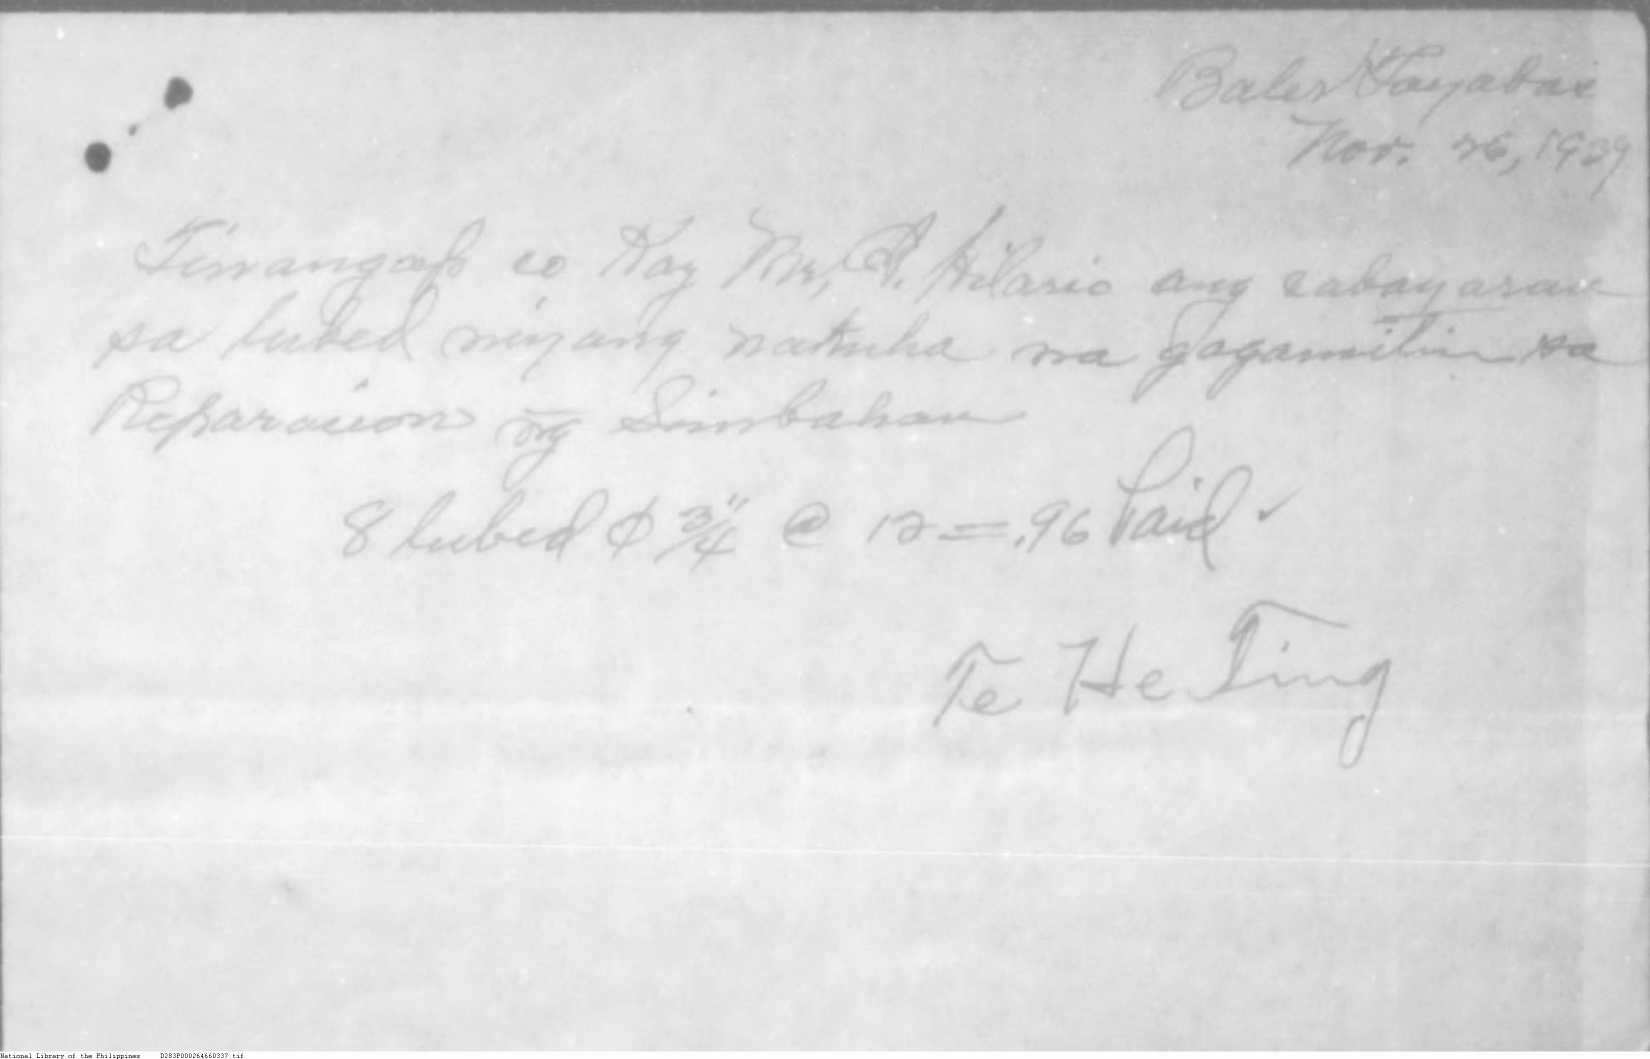 Baler Tayabas
Nov. 26, 1939
Tinangap co Kay Mr, A. Hilario ang cabayaran
sa lubed niyang nakuha na gagamitin sa
Reparacion ng Simbahan
8 lubed φ 3/4" @ 12 = .96 Paid ✓
Te He Ting
National Library of the Philippines D283P000264660337.tif